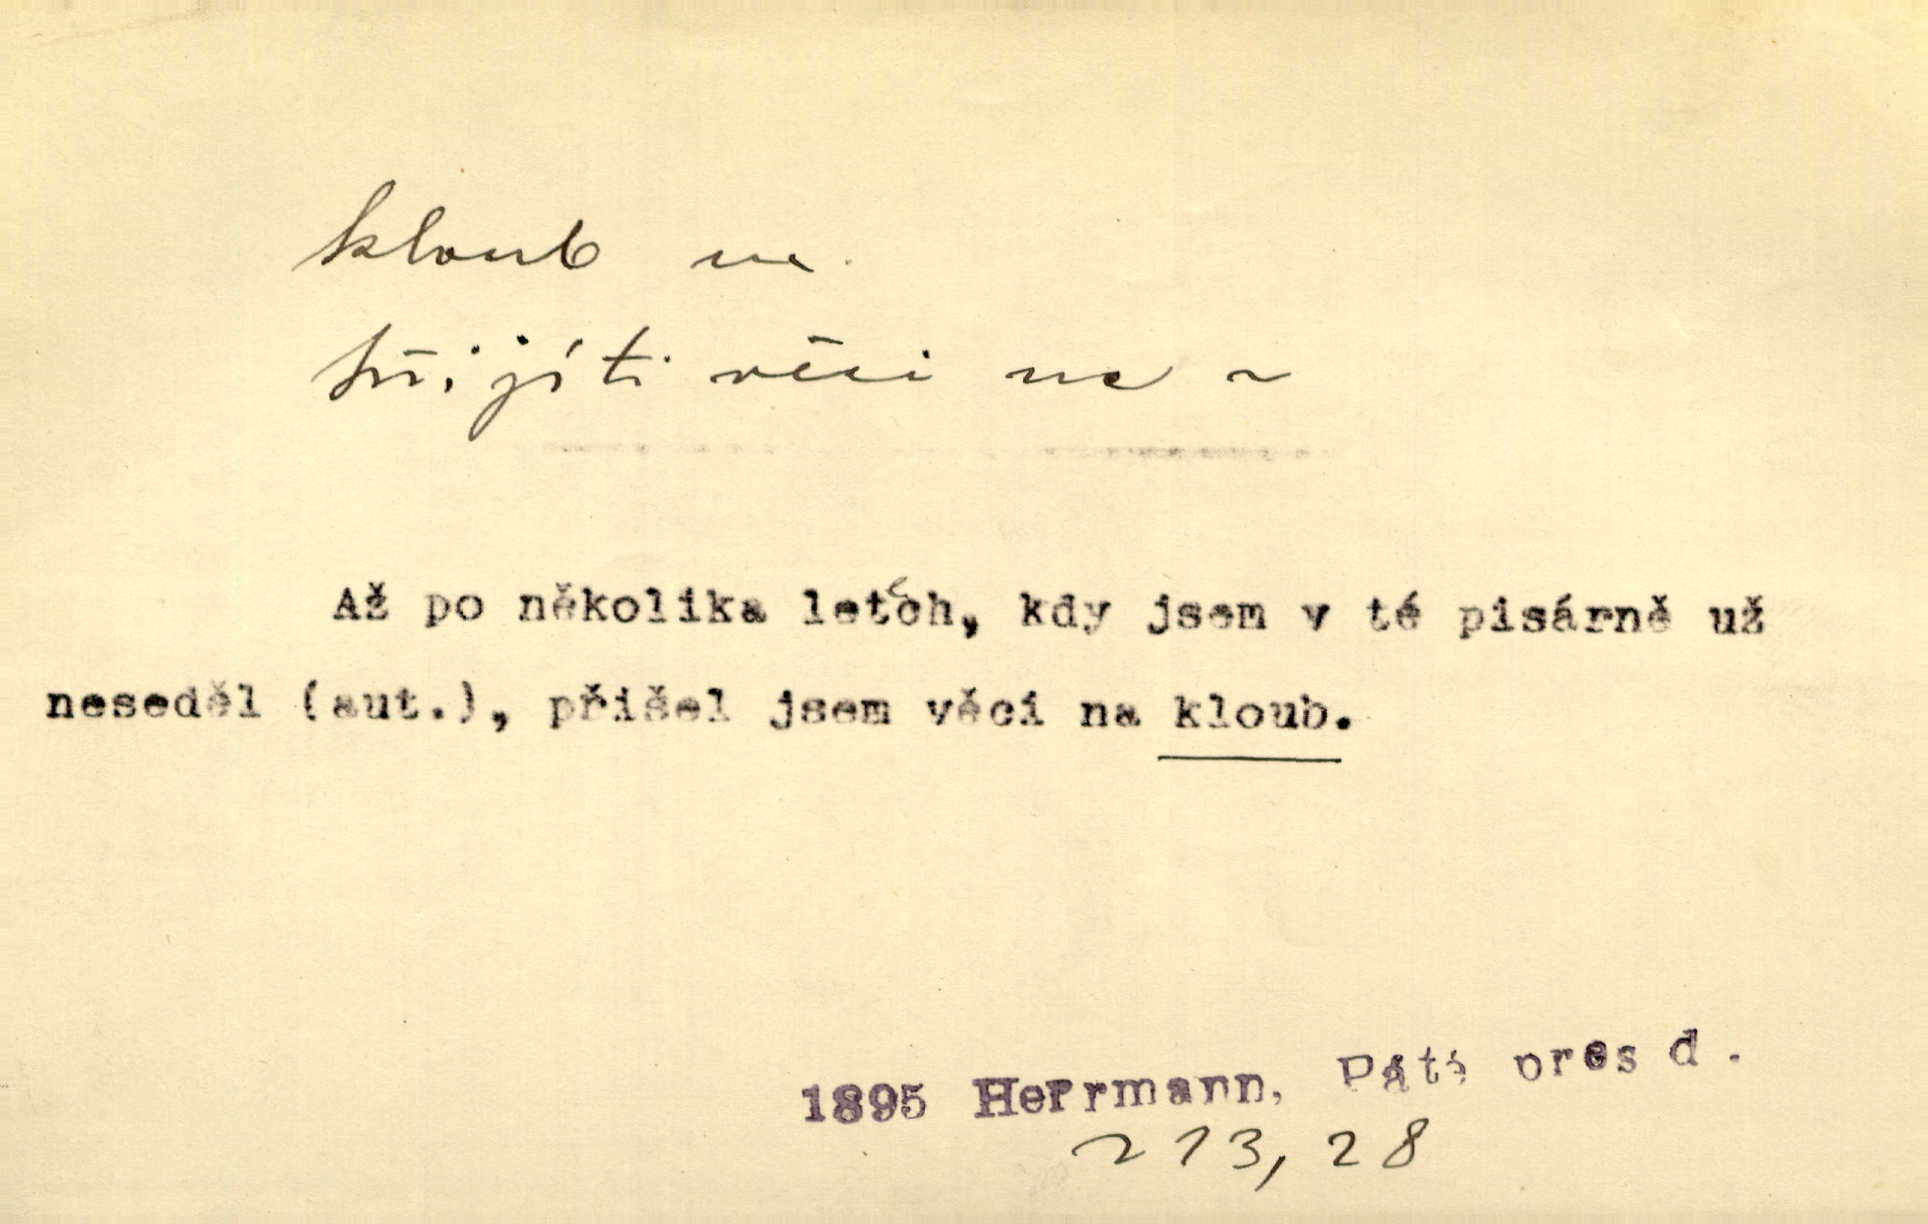 kloub m.
přijíti věci na ~
Až po několika letech, kdy jsem v té pisárně už
neseděl (aut.), přišel jsem věci na kloub.
1895 Herrmann, Páté pres d.
213, 28